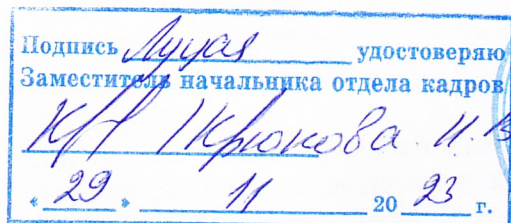 Подпись Луцая удостоверяю
Заместитель начальника отдела кадров
Крюкова И.В
« 29 » 11 20 23 г.